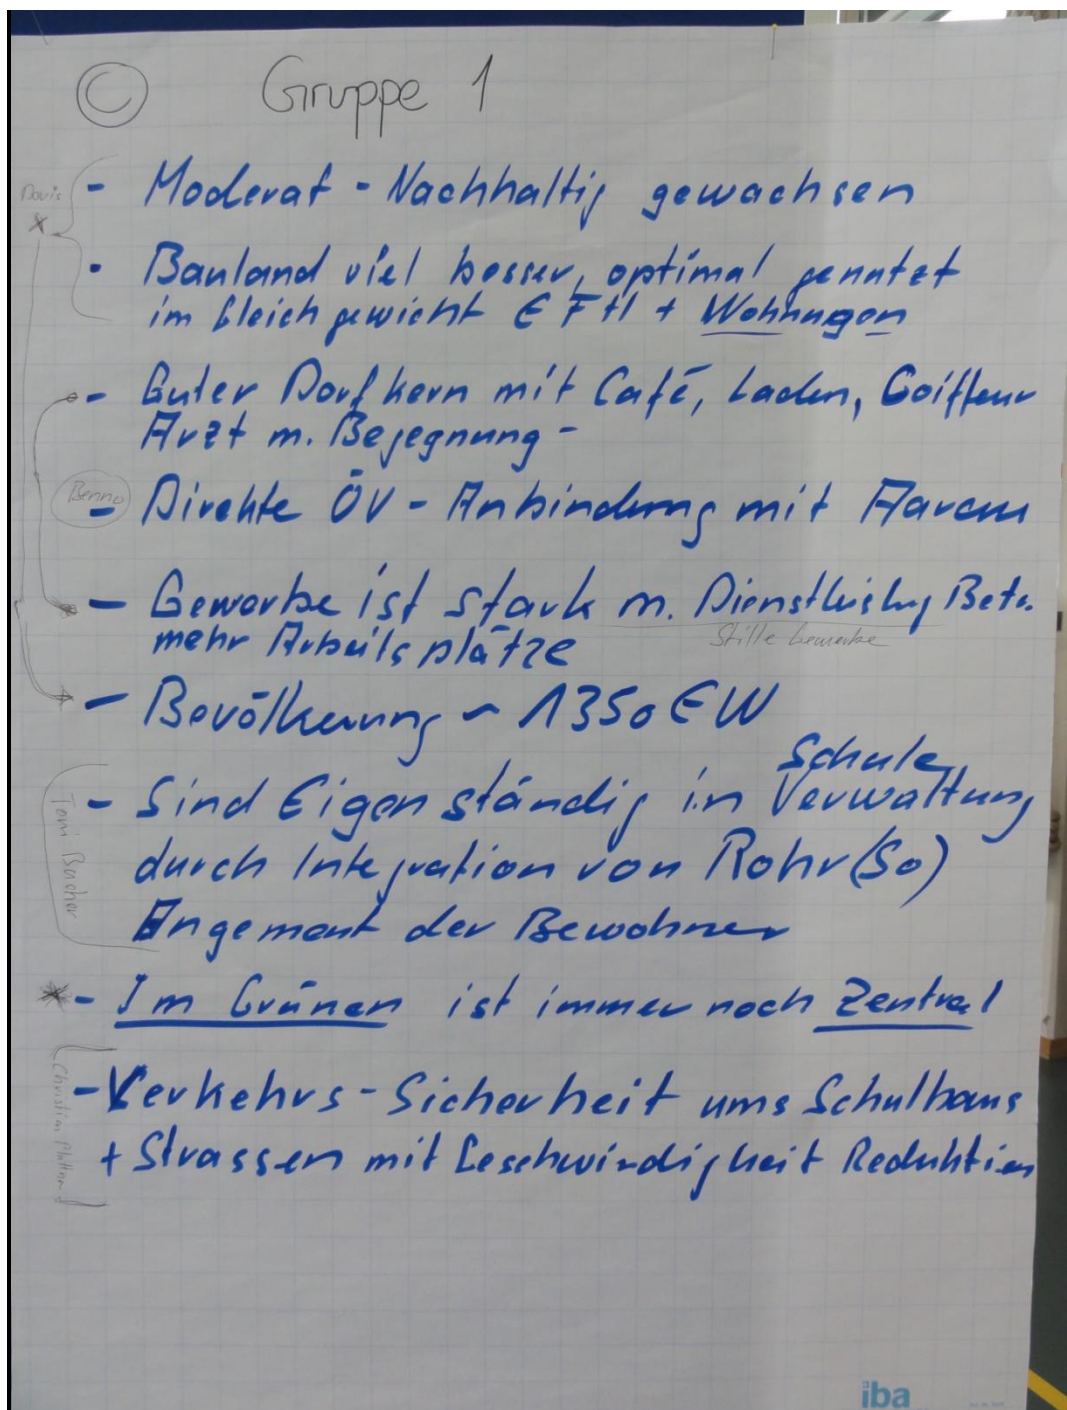 C Gruppe 1
Doris
- Moderat - Nachhaltig gewachsen
- Bauland viel besser, optimal genutzt
im Gleichgewicht EFH + Wohnungen
- Guter Dorfkern mit Café, Laden, Coiffeur
Arzt m. Begegnung -
Benno
- Direkte ÖV - Anbindung mit Aarau
- Gewerbe ist stark m. Dienstleistung Betr.
Stille Gewerbe
mehr Arbeitsplätze
- Bevölkerung ~ 1350 EW
Schule,
- Sind Eigenständig in Verwaltung
Toni Bucher
durch Integration von Rohr (So)
Engement der Bewohner
- Im Grünen ist immer noch Zentral
- Verkehrs - Sicherheit ums Schulhaus
Christian
+ Strassen mit Geschwindigkeit Reduktion
iba